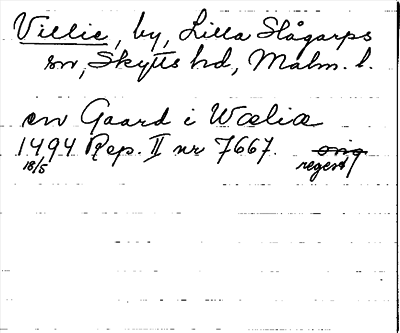 Villie, by, Lilla Slågarps
sn, Skytts hd, Malm. l.
en Gaard i Wœliœ
1494 Rep. II nr 7667. orig
18/5 regest